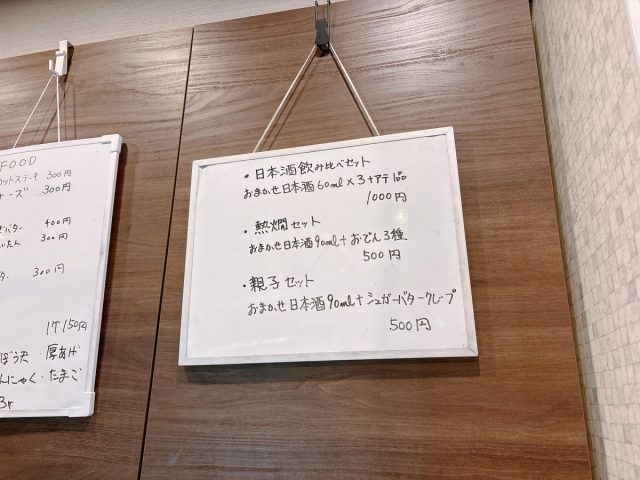 FOOD
カットステーキ 300円
ーズ 300円
バター 400円
たん 300円
300円
1ケ150円
ぼう天・厚あげ
んにゃく・たまご
3ヶ
・日本酒飲み比べセット
おまかせ日本酒60ml×3+アテ1品
1000円
・熱燗セット
おまかせ日本酒90ml+おでん3種
500円
・親子セット
おまかせ日本酒90ml+シュガーバタークレープ
500円